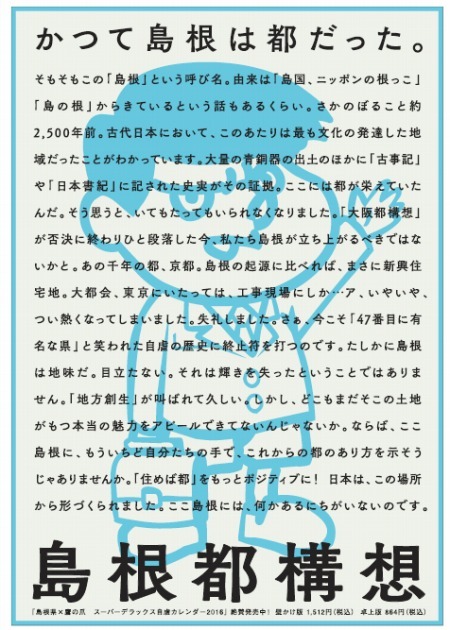 かつて島根は都だった。
そもそもこの「島根」という呼び名。由来は「島国、ニッポンの根っこ」
「島の根」からきているという話もあるくらい。さかのぼること約
2,500年前。古代日本において、このあたりは最も文化の発達した地
域だったことがわかっています。大量の青銅器の出土のほかに「古事記」
や「日本書紀」に記された史実がその証拠。ここには都が栄えていた
んだ。そう思うと、いてもたってもいられなくなりました。「大阪都構想」
が否決に終わりひと段落した今、私たち島根が立ち上がるべきではな
いかと。あの千年の都、京都。島根の起源に比べれば、まさに新興住
宅地。大都会、東京にいたっては、工事現場にしか…ア、いやいや、
つい熱くなってしまいました。失礼しました。さぁ、今こそ「47番目に有
名な県」と笑われた自虐の歴史に終止符を打つのです。たしかに島根
は地味だ。目立たない。それは輝きを失ったということではありま
せん。「地方創生」が叫ばれて久しい。しかし、どこもまだそこの土地
がもつ本当の魅力をアピールできてないんじゃないか。ならば、ここ
島根に、もういちど自分たちの手で、これからの都のあり方を示そう
じゃありませんか。「住めば都」をもっとポジティブに！ 日本は、この場所
から形づくられました。ここ島根には、何かあるにちがいないのです。
島根都構想
「島根県×鷹の爪 スーパーデラックス自虐カレンダー2016」絶賛発売中！ 壁かけ版 1,512円(税込) 卓上版 864円(税込)